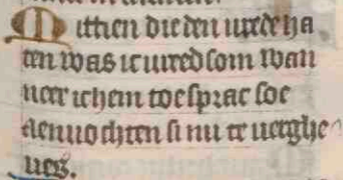 Mittien dieden vrede ha
ren was ic vredsom wan
neer ic hem toe sprac soe
aenvochten si mi te verghe
ves.